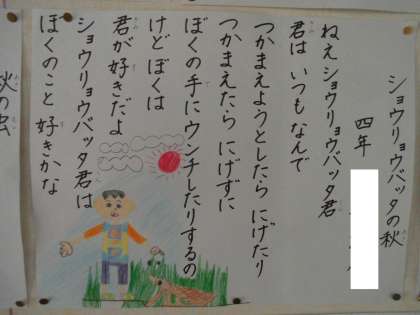 ショウリョウバッタの秋
四年
ねえショウリョウバッタ君
君はいつもなんで
つかまえようとしたらにげたり
つかまえたらにげずに
ぼくの手にウンチしたりするの
けどぼくは
君が好きだよ
ショウリョウバッタ君は
ぼくのこと好きかな
秋の虫